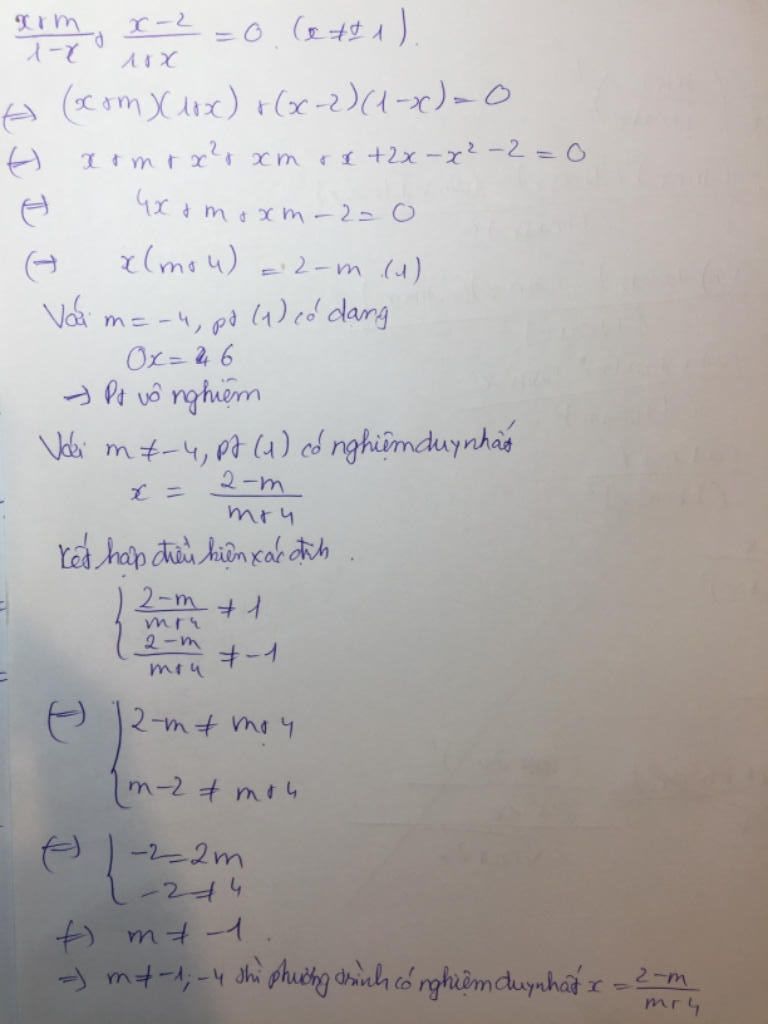 x+m/1-x + x-2/1+x = 0 (x ≠ ± 1).
⇔ (x+m)(1+x) + (x-2)(1-x) = 0
⇔ x + m + x² + xm + x + 2x - x² - 2 = 0
⇔ 4x + m + xm - 2 = 0
⇔ x(m+4) = 2-m (1)
Với m = -4, pt (1) có dạng
0x = 6
→ Pt vô nghiệm
Với m ≠ -4, pt (1) có nghiệm duy nhất
x = 2-m/m+4
Kết hợp điều kiện xác định.
{ 2-m/m+4 ≠ 1
2-m/m+4 ≠ -1
⇔ { 2-m ≠ m+4
m-2 ≠ m+4
⇔ { -2 = 2m
-2 ≠ 4
⇔ m ≠ -1.
⇒ m ≠ -1; -4 thì phương trình có nghiệm duy nhất x = 2-m/m+4